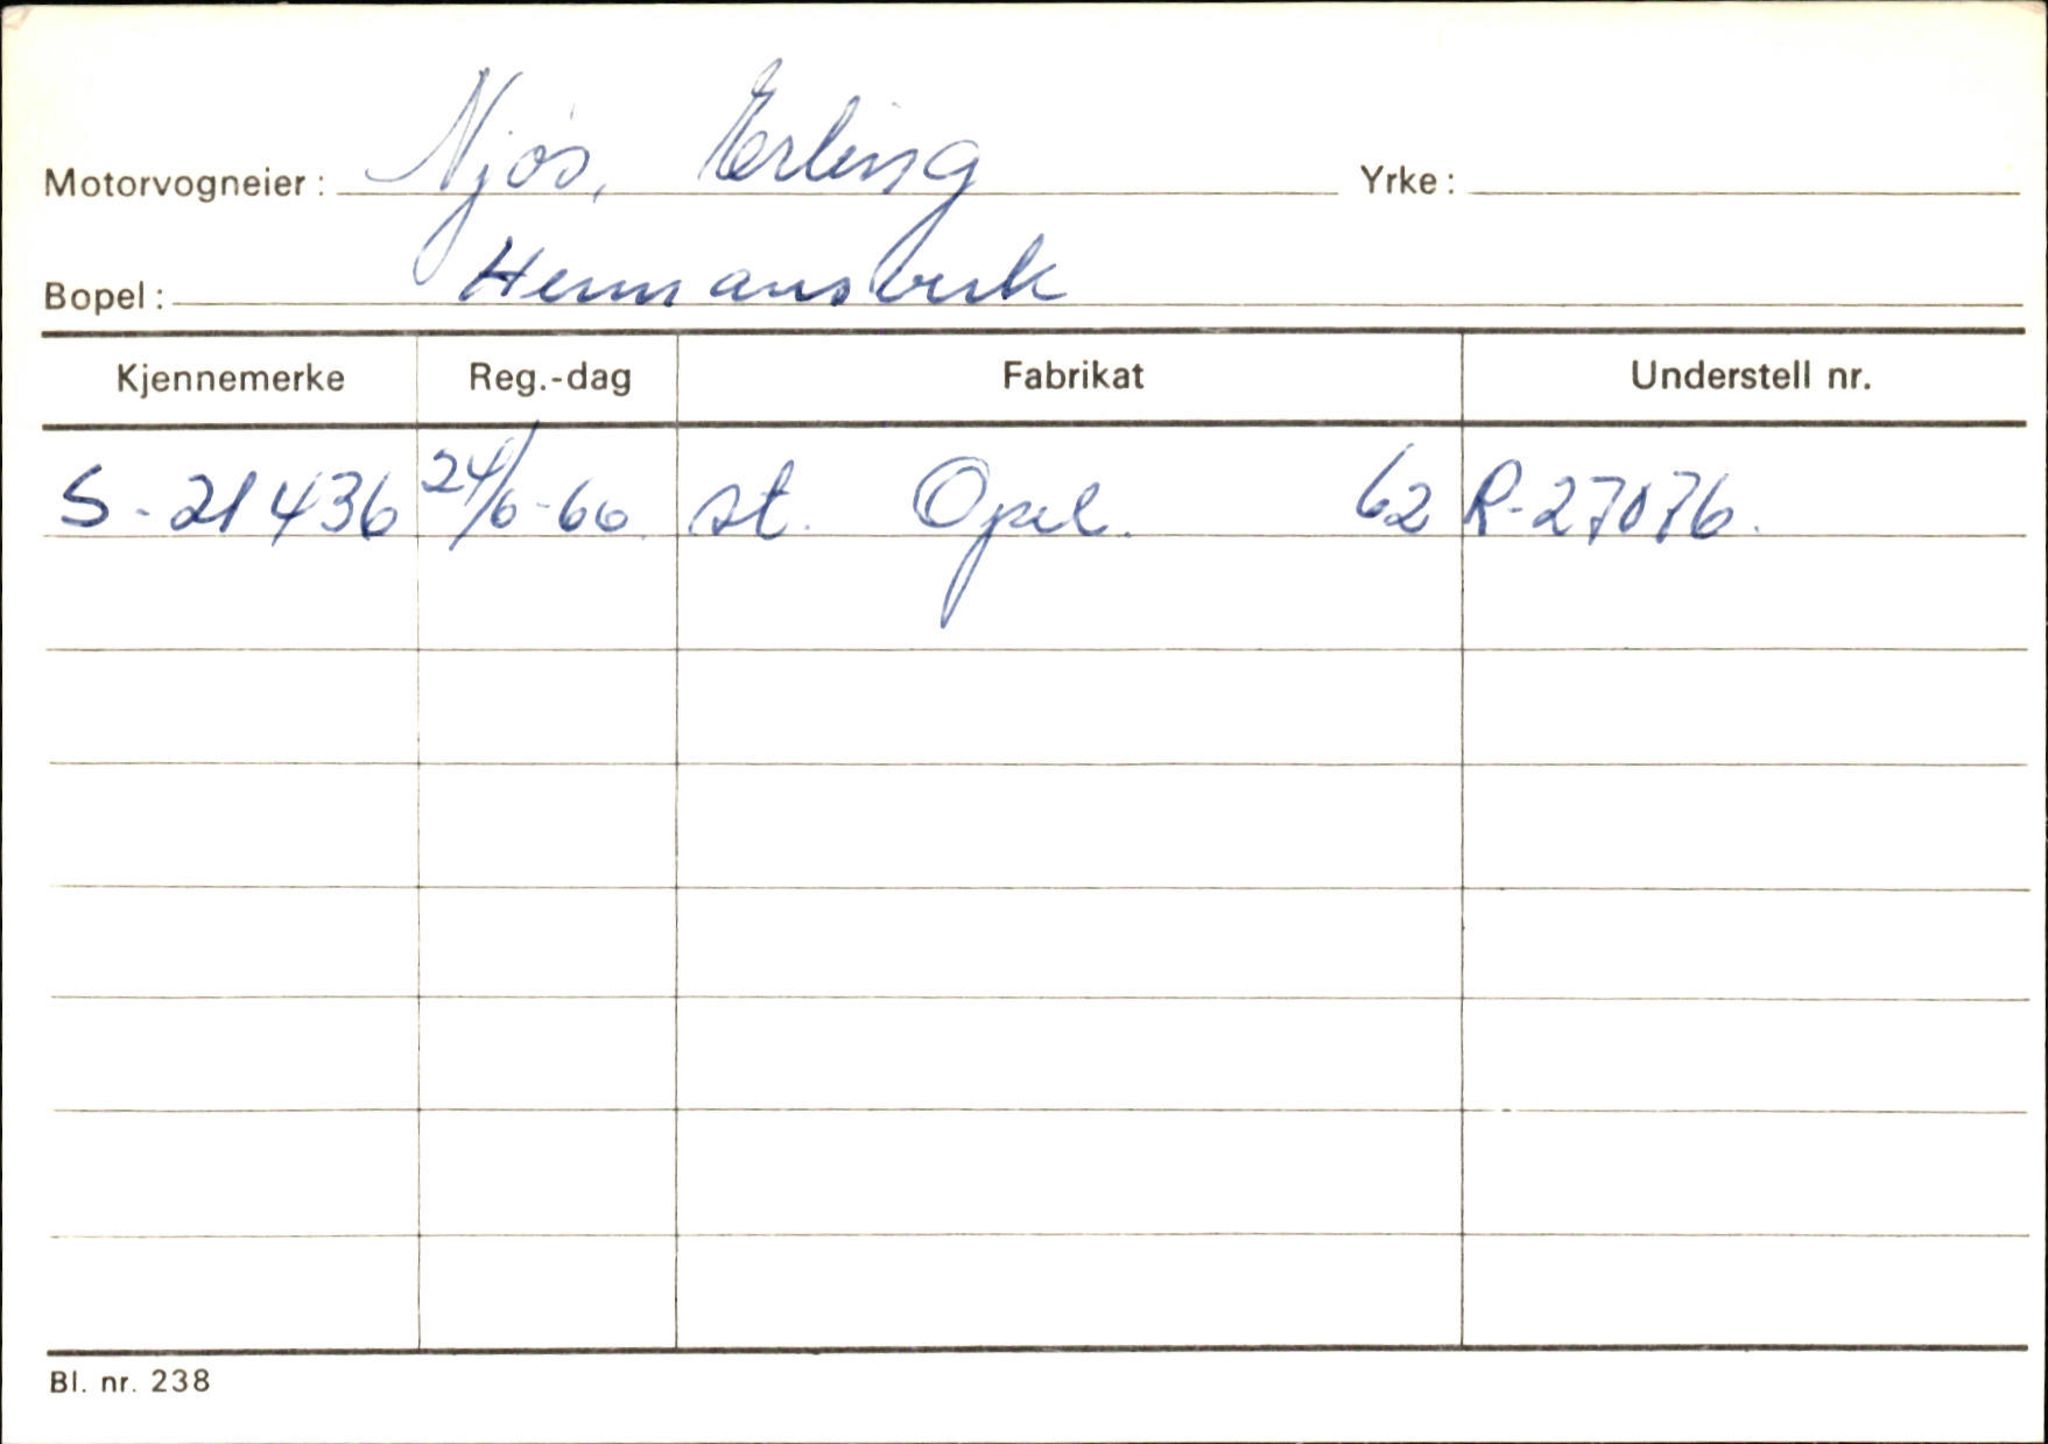 Motorvogneier: Njøs, Erling Yrke:
Bopel: Hermansverk
Kjennemerke Reg.-dag Fabrikat Understell nr.
S-21436 24/6-66. st. Opel. 62 R-27076.
Bl. nr. 238